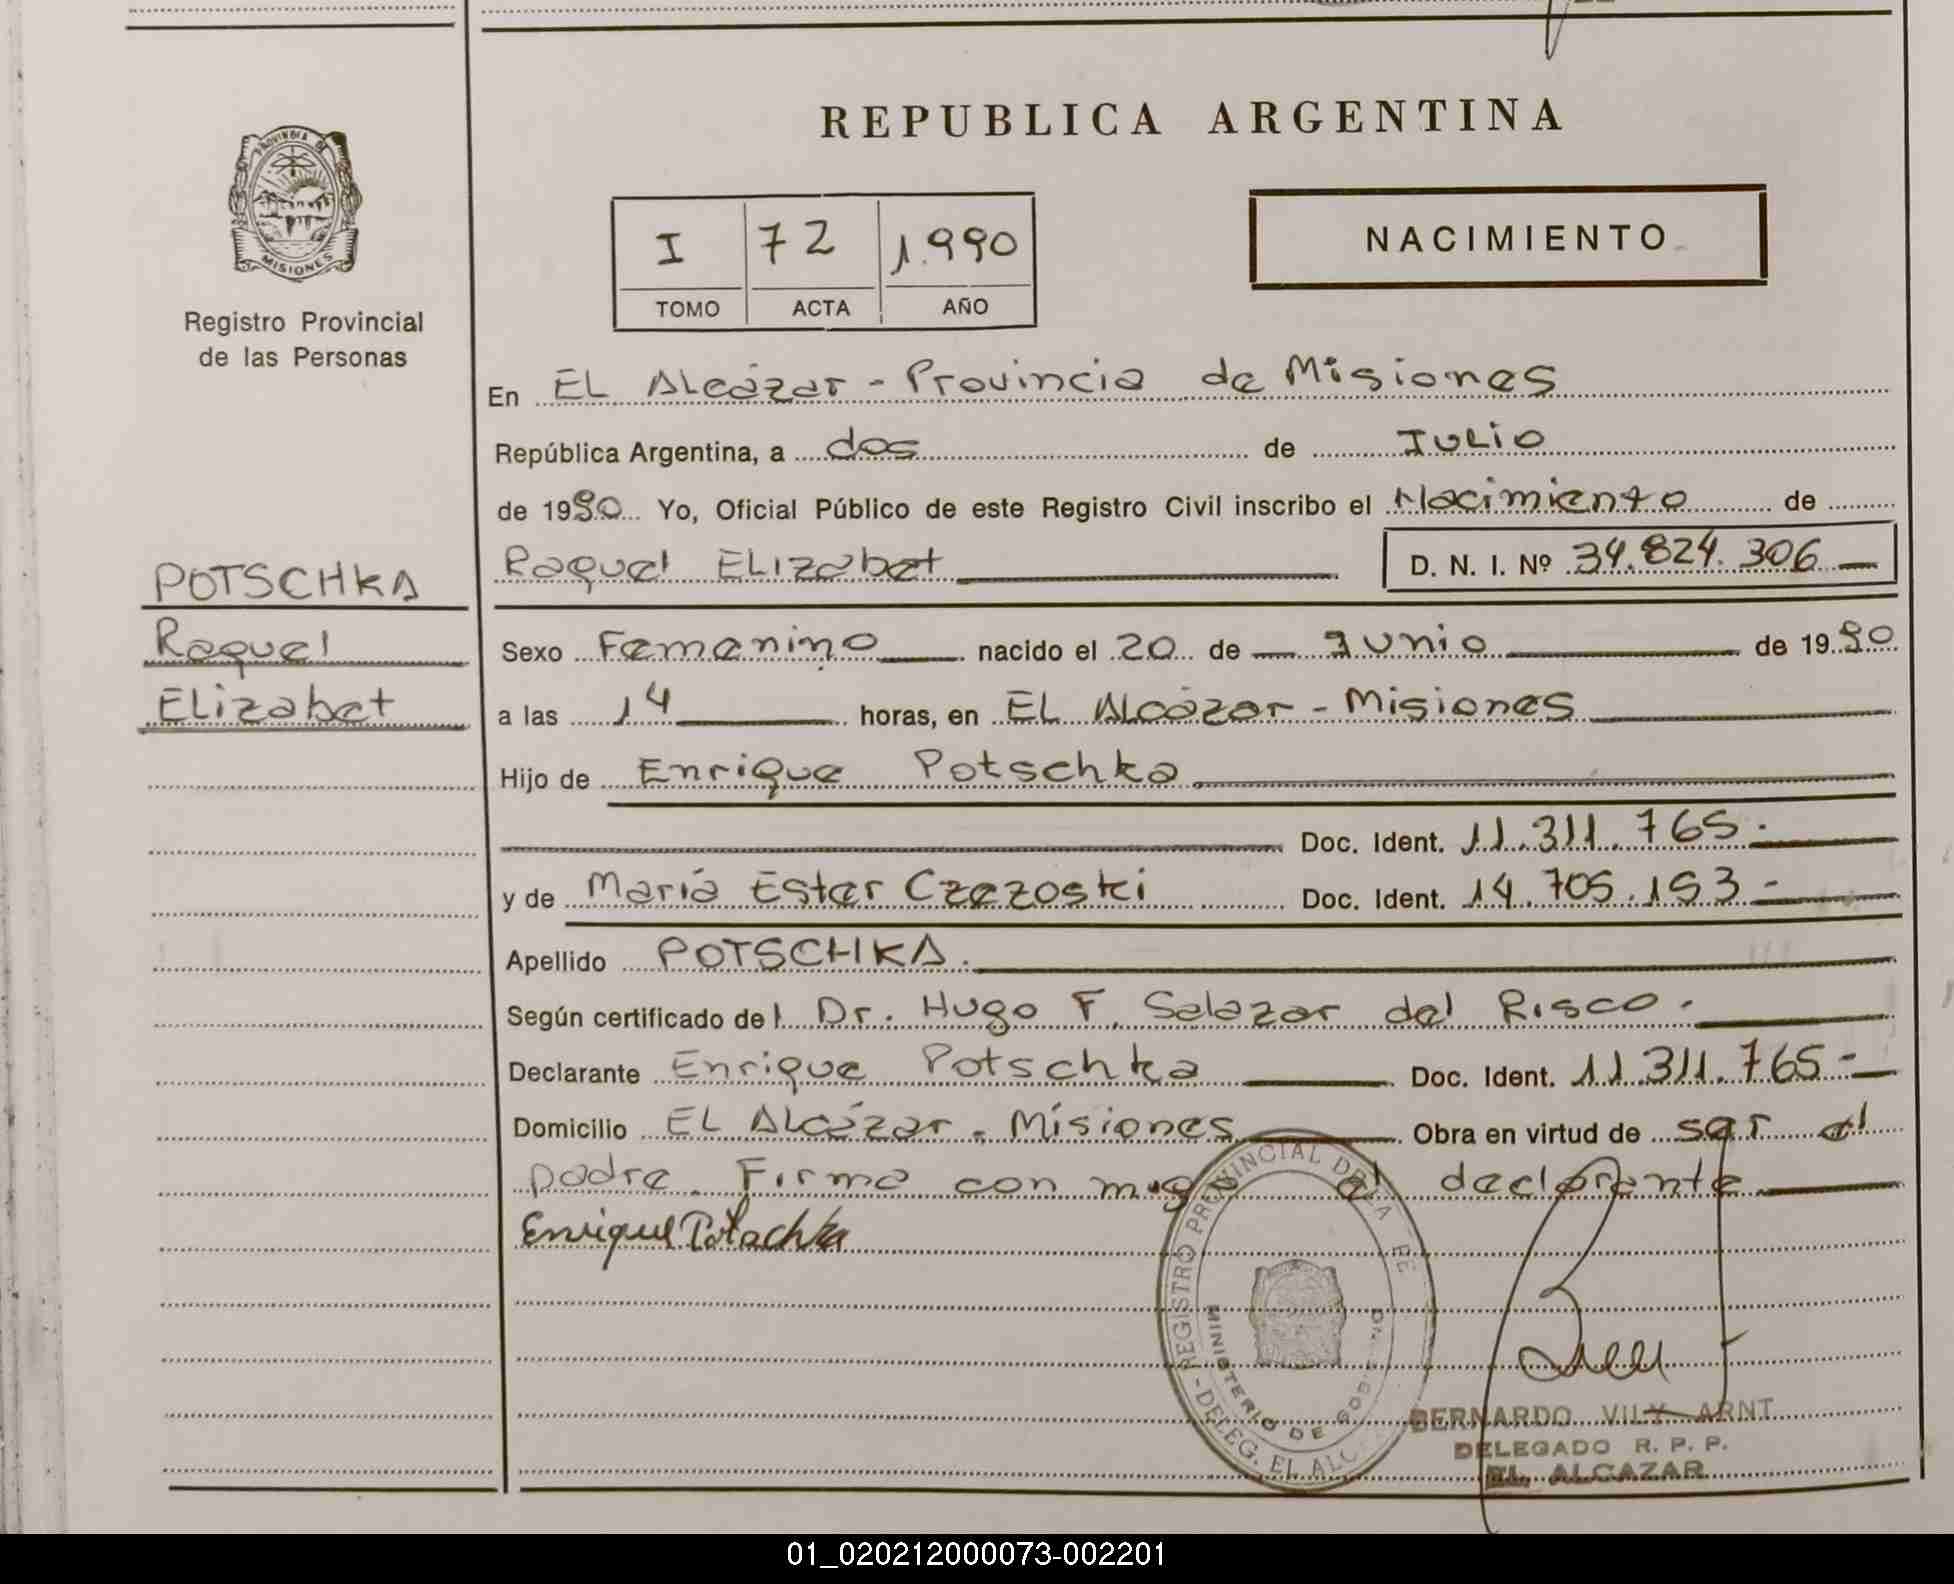 REPUBLICA ARGENTINA
PROVINCIA DE
MISIONES
Registro Provincial
de las Personas
I 72 1.990
TOMO ACTA AÑO
NACIMIENTO
En EL Alcázar - Provincia de Misiones
República Argentina, a dos de Julio
de 1990 Yo, Oficial Público de este Registro Civil inscribo el Nacimiento de
POTSCHKA
Raquel
Elizabet
Raquel Elizabet D. N. I. Nº 34.824.306
Sexo Femenino nacido el 20 de Junio de 1990
a las 14 horas, en EL Alcázar - Misiones
Hijo de Enrique Potschka
Doc. Ident. 11.311.765.-
y de María Ester Czezoski Doc. Ident. 14.705.153-
Apellido POTSCHKA.
Según certificado del Dr. Hugo F. Salazar del Risco.
Declarante Enrique Potschka Doc. Ident. 11.311.765-
Domicilio EL Alcázar - Misiones Obra en virtud de ser el
padre. Firma con migo el declarante
Enrique Potschka
REGISTRO PROVINCIAL DE LA
MINISTERIO DE
- DELEG. EL ALC
BERNARDO ARNT
DELEGADO R. P. P.
EL ALCAZAR
01_020212000073-002201